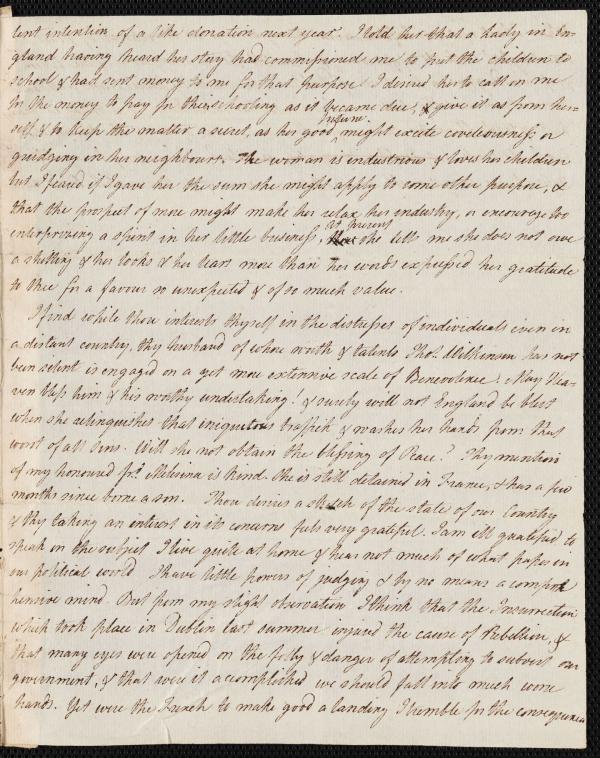 lent intention of a like donation next year. I told her that a lady in En-
gland having heard her story had commissioned me to put the children to
school & had sent money to me for that purpose I desired her to call on me
for the money to pay for the schooling as it became due, & give it as from her-
self, & to keep the matter a secret, as her good fortune might excite covetousness or
grudging in her neighbours. The woman is industrious & loves her children
but I feared if I gave her the sum she might apply to some other purpose, &
that the prospect of more might make her relax her industry, or encourage too
enterprizing a spirit in her little business, at present she tells me she does not owe
a shilling & her looks & her tears more than her words expressed her gratitude
to thee for a favour so unexpected & of so much value.
I find while thou interests thyself in the distresses of individuals even in
a distant country, thy husband of whose worth & talents Thos. Wilkinson has not
been silent is engaged on a yet more extensive scale of Benevolence! May Hea-
ven bless him & his worthy undertaking! & surely will not England be blest
when she relinquishes that iniquitous traffick & washes her hands from that
worst of all sins. Will she not obtain the blessing of Peace? Thy mention
of my honoured frd. Melesina is kind. She is still detained in France, & has a few
months since borne a son. Thou desires a sketch of the state of our Country
& thy taking an interest in its concerns feels very grateful. I am ill qualified to
speak on the subject I live quite at home & hear not much of what passes in
our political world I have little powers of judging & by no means a compre
hensive mind. But from my slight observation I think that the Insurrection
which took place in Dublin last summer injured the cause of Rebellion, &
that many eyes were opened on the folly & danger of attempting to subvert our
government, & that were it accomplished we should fall into much worse
hands. Yet were the French to make good a landing I tremble for the consequences